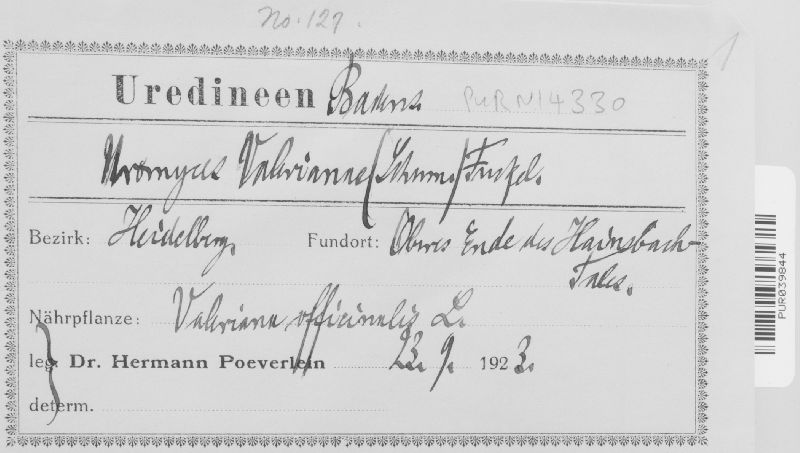 No. 127.
Uredineen Badens PUR N14330
Uromyces Valerianae (Schum.) Fuckel.
Bezirk: Heidelberg. Fundort: Oberes Ende des Hainsbach-
Tales.
Nährpflanze: Valeriana officinalis L.
leg. Dr. Hermann Poeverlein 23. 9. 1923.
determ.
PUR039844